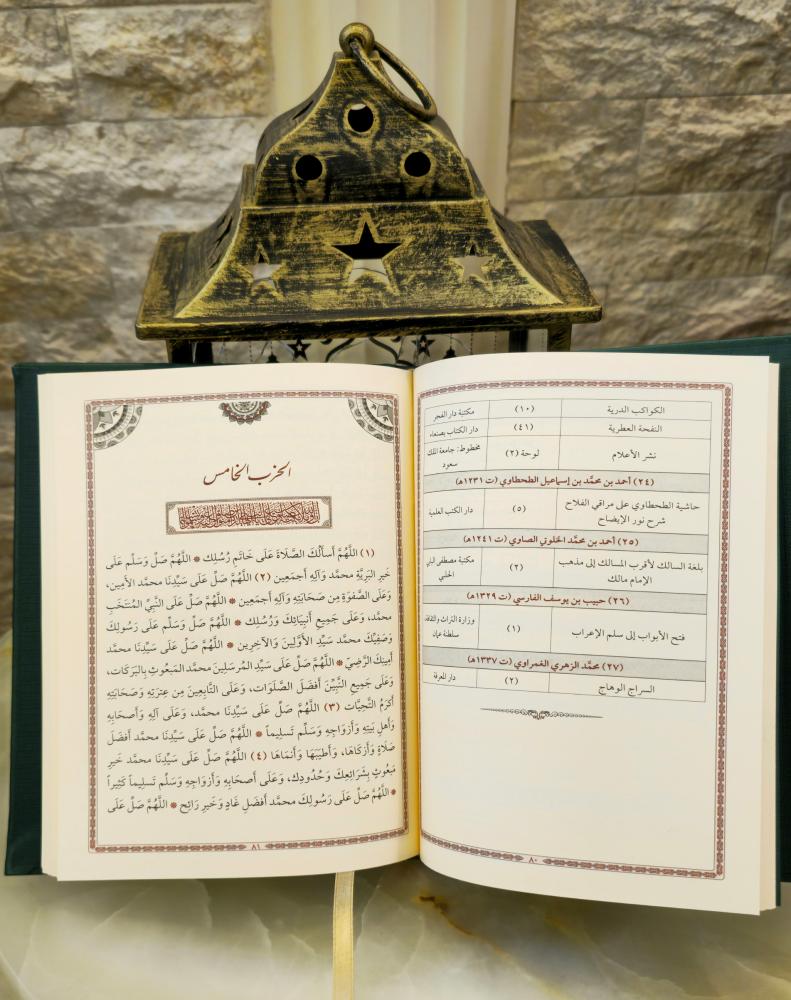 الكواكب الدرية (١٠) مكتبة دار الفجر
النفحة العطرية (٤١) دار الكتاب بصنعاء
نشر الأعلام لوحة (٢) مخطوط: جامعة الملك
سعود
(٢٤) أحمد بن محمَّد بن إسماعيل الطحطاوي (ت ١٢٣١هـ)
حاشية الطحطاوي على مراقي الفلاح
شرح نور الإيضاح (٥) دار الكتب العلمية
(٢٥) أحمد بن محمَّد الخلوتي الصاوي (ت ١٢٤١هـ)
بلغة السالك لأقرب المسالك إلى مذهب
الإمام مالك (٢) مكتبة مصطفى البابي
الحلبي
(٢٦) حبيب بن يوسف الفارسي (ت ١٣٢٩هـ)
فتح الأبواب إلى سلم الإعراب (١) وزارة التراث والثقافة
سلطنة عمان
(٢٧) محمَّد الزهري الغمراوي (ت ١٣٣٧هـ)
السراج الوهاج (٢) دار المعرفة
٨٠
الحزب الخامس
(١) اللَّهُمَّ أَسأَلُكَ الصَّلاَةَ عَلَى خَاتَمِ رُسُلِكَ * اللَّهُمَّ صَلِّ وَسَلِّم عَلَى
خَيرِ البَرِيَّةِ محمد وَآلِهِ أَجمَعِين (٢) اللَّهُمَّ صَلِّ عَلَى سَيِّدِنَا محمَّد الأَمِين،
وَعَلَى الصَّفوَةِ مِن صَحَابَتِهِ وَآلِهِ أَجمَعِين * اللَّهُمَّ صَلِّ عَلَى النَّبِيِّ المُنتَخَبِ
محمَّد، وَعَلَى جَمِيعِ أَنبِيَائِكَ وَرُسُلِك * اللَّهُمَّ صَلِّ وَسَلِّم عَلَى رَسُولِكَ
وَصَفِيِّكَ محمَّد سَيِّدِ الأَوَّلِينَ وَالآخِرِين * اللَّهُمَّ صَلِّ عَلَى سَيِّدِنَا محمَّد
أَمِينِكَ الرَّضِيّ * اللَّهُمَّ صَلِّ عَلَى سَيِّدِ المُرسَلِينَ محمَّد المَبعُوثِ بِالبَرَكَات،
وَعَلَى جَمِيعِ النَّبِيِّينَ أَفضَلَ الصَّلَوَات، وَعَلَى التَّابِعِينَ مِن عِترَتِهِ وَصَحَابَتِهِ
أَكرَمُ التَّحِيَّات (٣) اللَّهُمَّ صَلِّ عَلَى سَيِّدِنَا محمَّد، وَعَلَى آلِهِ وَأَصحَابِهِ
وَأَهلِ بَيتِهِ وَأَزوَاجِهِ وَسَلِّم تَسلِيماً * اللَّهُمَّ صَلِّ عَلَى سَيِّدِنَا محمَّد أَفضَلَ
صَلاَةٍ وَأَزكَاهَا، وَأَطيَبَهَا وَأَنمَاهَا (٤) اللَّهُمَّ صَلِّ عَلَى سَيِّدِنَا محمَّد خَيرِ
مَبعُوثٍ بِشَرَائِعِكَ وَحُدُودِك، وَعَلَى أَصحَابِهِ وَأَزوَاجِهِ وَسَلِّم تَسلِيماً كَثِيراً
* اللَّهُمَّ صَلِّ عَلَى رَسُولِكَ محمَّد أَفضَلِ غَادٍ وَخَيرِ رَائِح * اللَّهُمَّ صَلِّ عَلَى
٨١